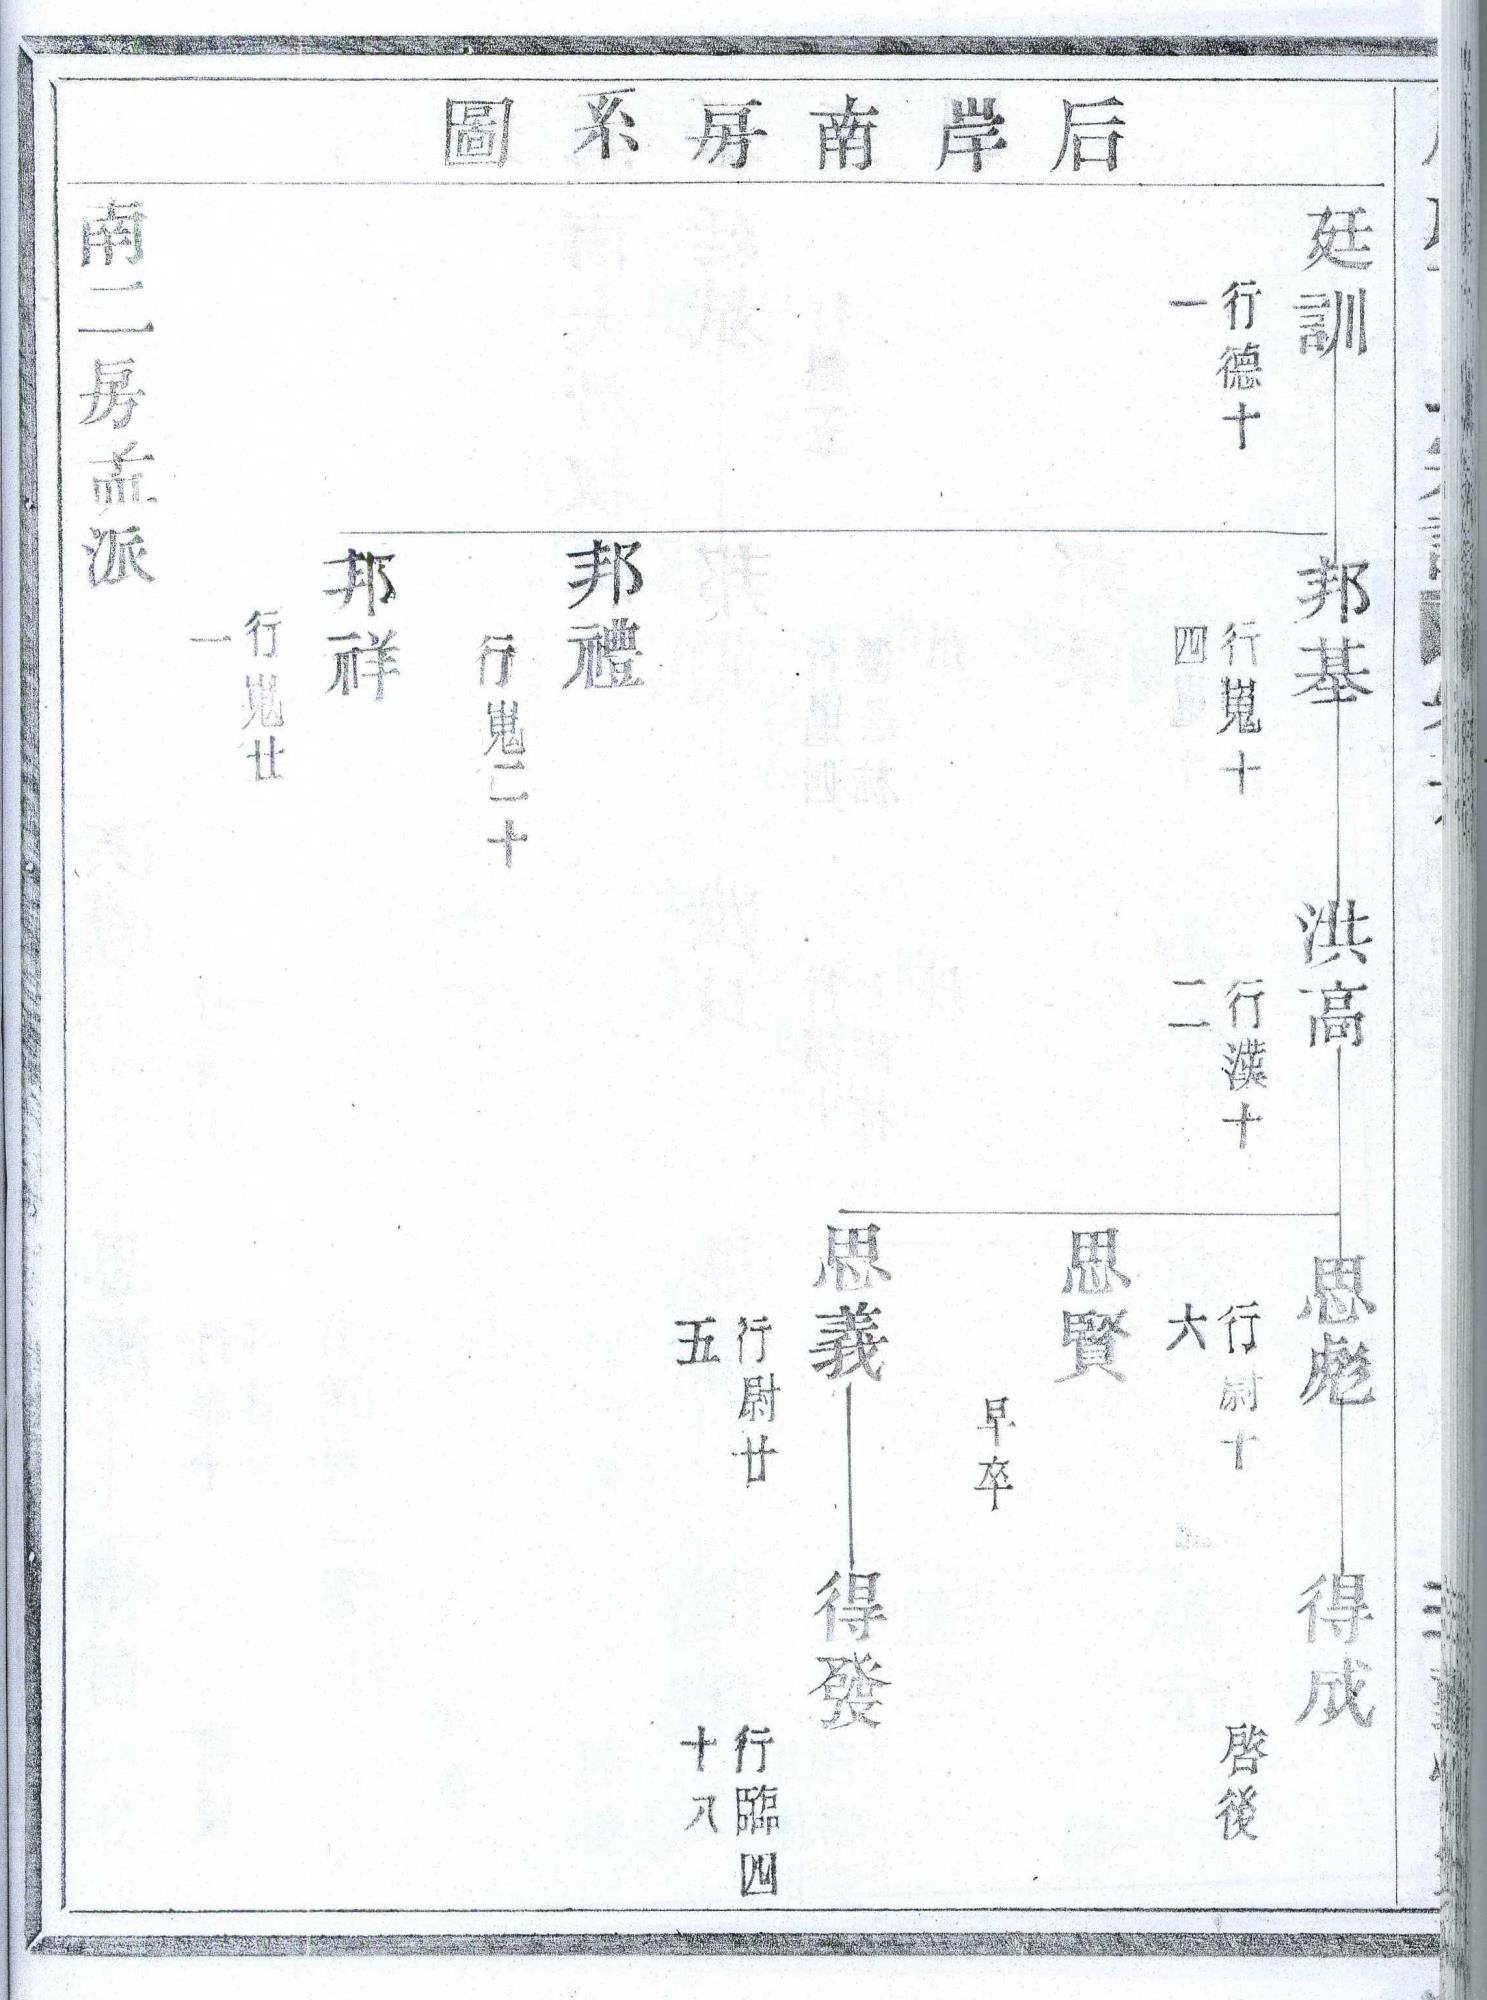 后岸南房系圖
廷訓
行德十
一
邦基
行嵬十
四
邦禮
行嵬二十
邦祥
行嵬廿
一
洪高
行漢十
二
思彪
行尉十
六
思賢
早卒
思義
行尉廿
五
得成
啓後
得發
行臨四
十八
南二房孟派